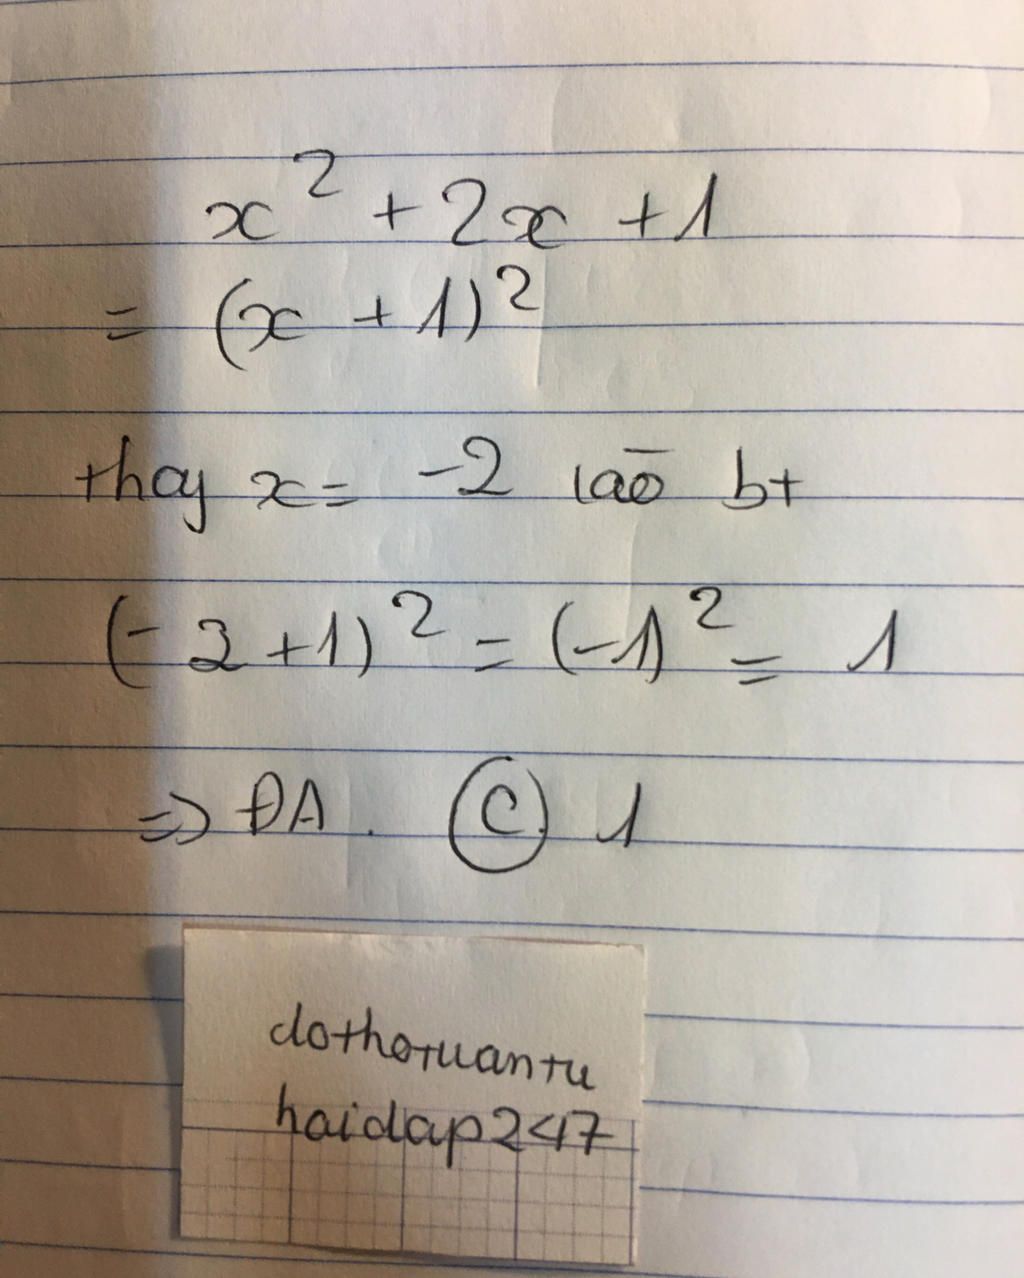 x² + 2x + 1
= (x + 1)²
thay x = -2 bt
(-2+1)² = (-1)² = 1
=> ĐA. C. 1
dothotuantu
haidap247